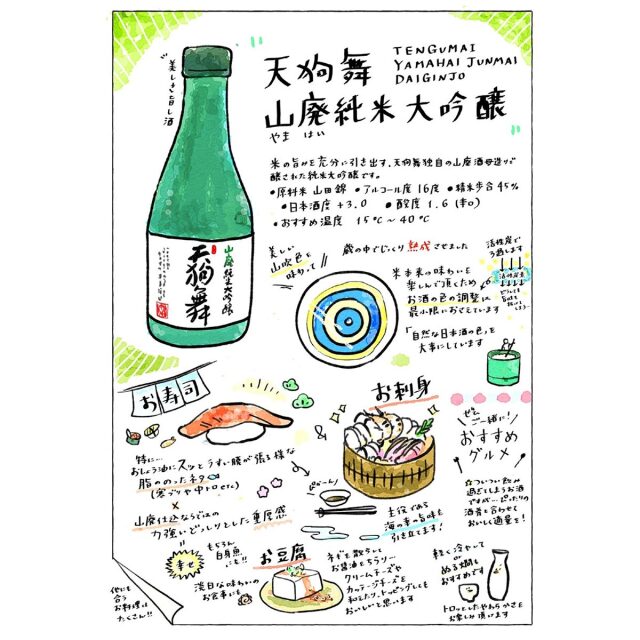 "美しき旨し酒"
"天狗舞
山廃純米大吟醸"
やま はい
TENGUMAI
YAMAHAI JUNMAI
DAIGINJO
米の旨みを充分に引き出す、天狗舞独自の山廃酒母造りで
醸された純米大吟醸です。
●原料米 山田錦 ●アルコール度 16度 ●精米歩合 45%
●日本酒度 +3.0 ●酸度 1.6(辛口)
●おすすめ温度 15℃~40℃
山廃純米大吟醸
天狗舞
美しい
山吹色を
味わって
蔵の中でじっくり熟成させました
米本来の味わいを
楽しんで頂くため
お酒の色の調整は
最小限におさえています
「自然な日本酒の色」を
大事にしています
活性炭で
ろ過します
お寿司
特に…
おしょう油にスッとうすい膜が張る様な
脂ののったネタ
(寒ブリや中トロetc)
×
山廃仕込ならではの
力強いどっしりとした重度感
幸せ
もちろん
白身魚
にも!!
&
お刺身
どーん!
主役である
海の幸の旨味を
引き立てます!
ぜひ
ご一緒に!
おすすめ
グルメ
☆ついつい飲み
過ぎてしまうお酒
ですが…ぴったりの
酒肴と合わせて
おいしく適量を!
お豆腐
淡白な味わいの
お食事にも
ネギを散らして
お醤油をちらり…
クリームチーズや
カッテージチーズを
和えたり、トッピングしても
おいしいと思います
軽く冷やして
or
ぬる燗も
おすすめです
トロッとしたやわらかさを
お楽しみ頂けます
他にも
合う
お料理は
たくさん!!